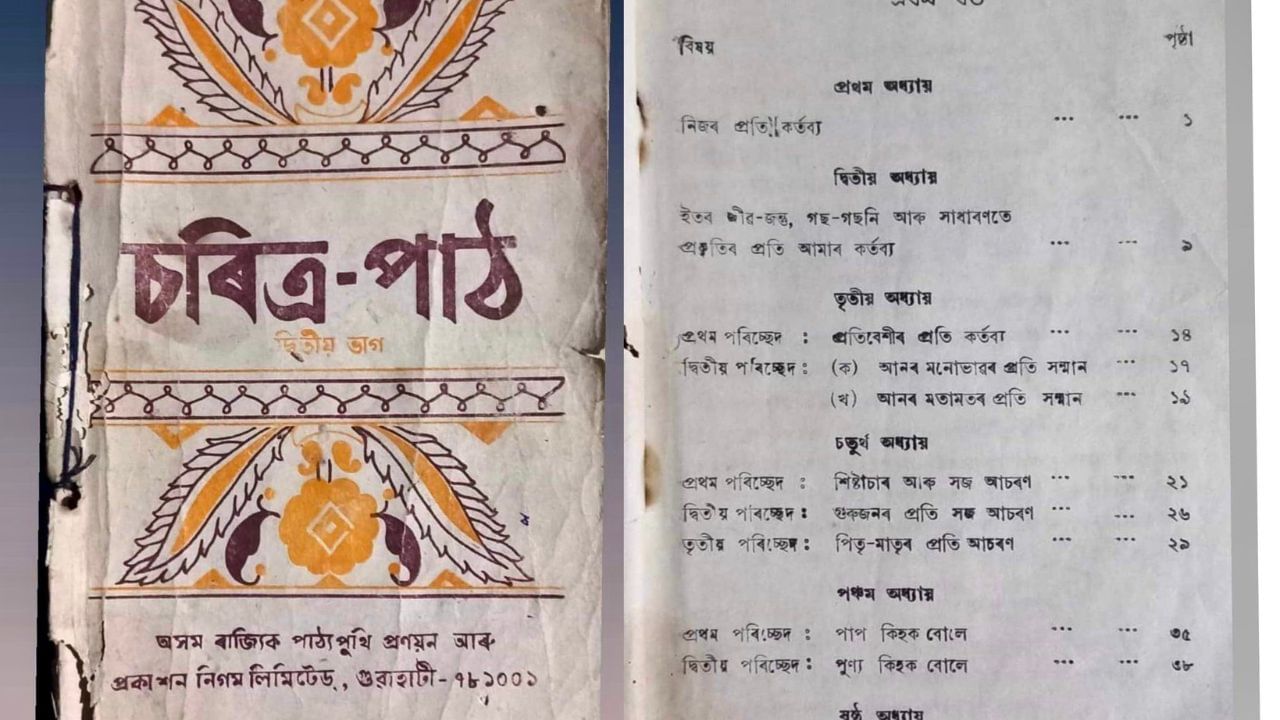 চৰিত্ৰ-পাঠ
দ্বিতীয় ভাগ
অসম ৰাজ্যিক পাঠ্যপুথি প্ৰণয়ন আৰু
প্ৰকাশন নিগম লিমিটেড্, গুৱাহাটী-৭৮১০০১
প্ৰথম খণ্ড
বিষয় পৃষ্ঠা
প্ৰথম অধ্যায়
নিজৰ প্ৰতি কৰ্তব্য ... ... ১
দ্বিতীয় অধ্যায়
ইতৰ জীৱ-জন্তু, গছ-গছনি আৰু সাধাৰণতে
প্ৰকৃতিৰ প্ৰতি আমাৰ কৰ্তব্য ... ... ৯
তৃতীয় অধ্যায়
প্ৰথম পৰিচ্ছেদ : প্ৰতিবেশীৰ প্ৰতি কৰ্তব্য ... ... ১৪
দ্বিতীয় পৰিচ্ছেদ : (ক) আনৰ মনোভাৱৰ প্ৰতি সন্মান ... ১৭
(খ) আনৰ মতামতৰ প্ৰতি সন্মান ... ১৯
চতুৰ্থ অধ্যায়
প্ৰথম পৰিচ্ছেদ : শিষ্টাচাৰ আৰু সজ আচৰণ ... ... ২১
দ্বিতীয় পৰিচ্ছেদ : গুৰুজনৰ প্ৰতি সজ আচৰণ ... ... ২৬
তৃতীয় পৰিচ্ছেদ : পিতৃ-মাতৃৰ প্ৰতি আচৰণ ... ... ২৯
পঞ্চম অধ্যায়
প্ৰথম পৰিচ্ছেদ : পাপ কিহক বোলে ... ... ৩৫
দ্বিতীয় পৰিচ্ছেদ : পুণ্য কিহক বোলে ... ... ৩৮
ষষ্ঠ অধ্যায়